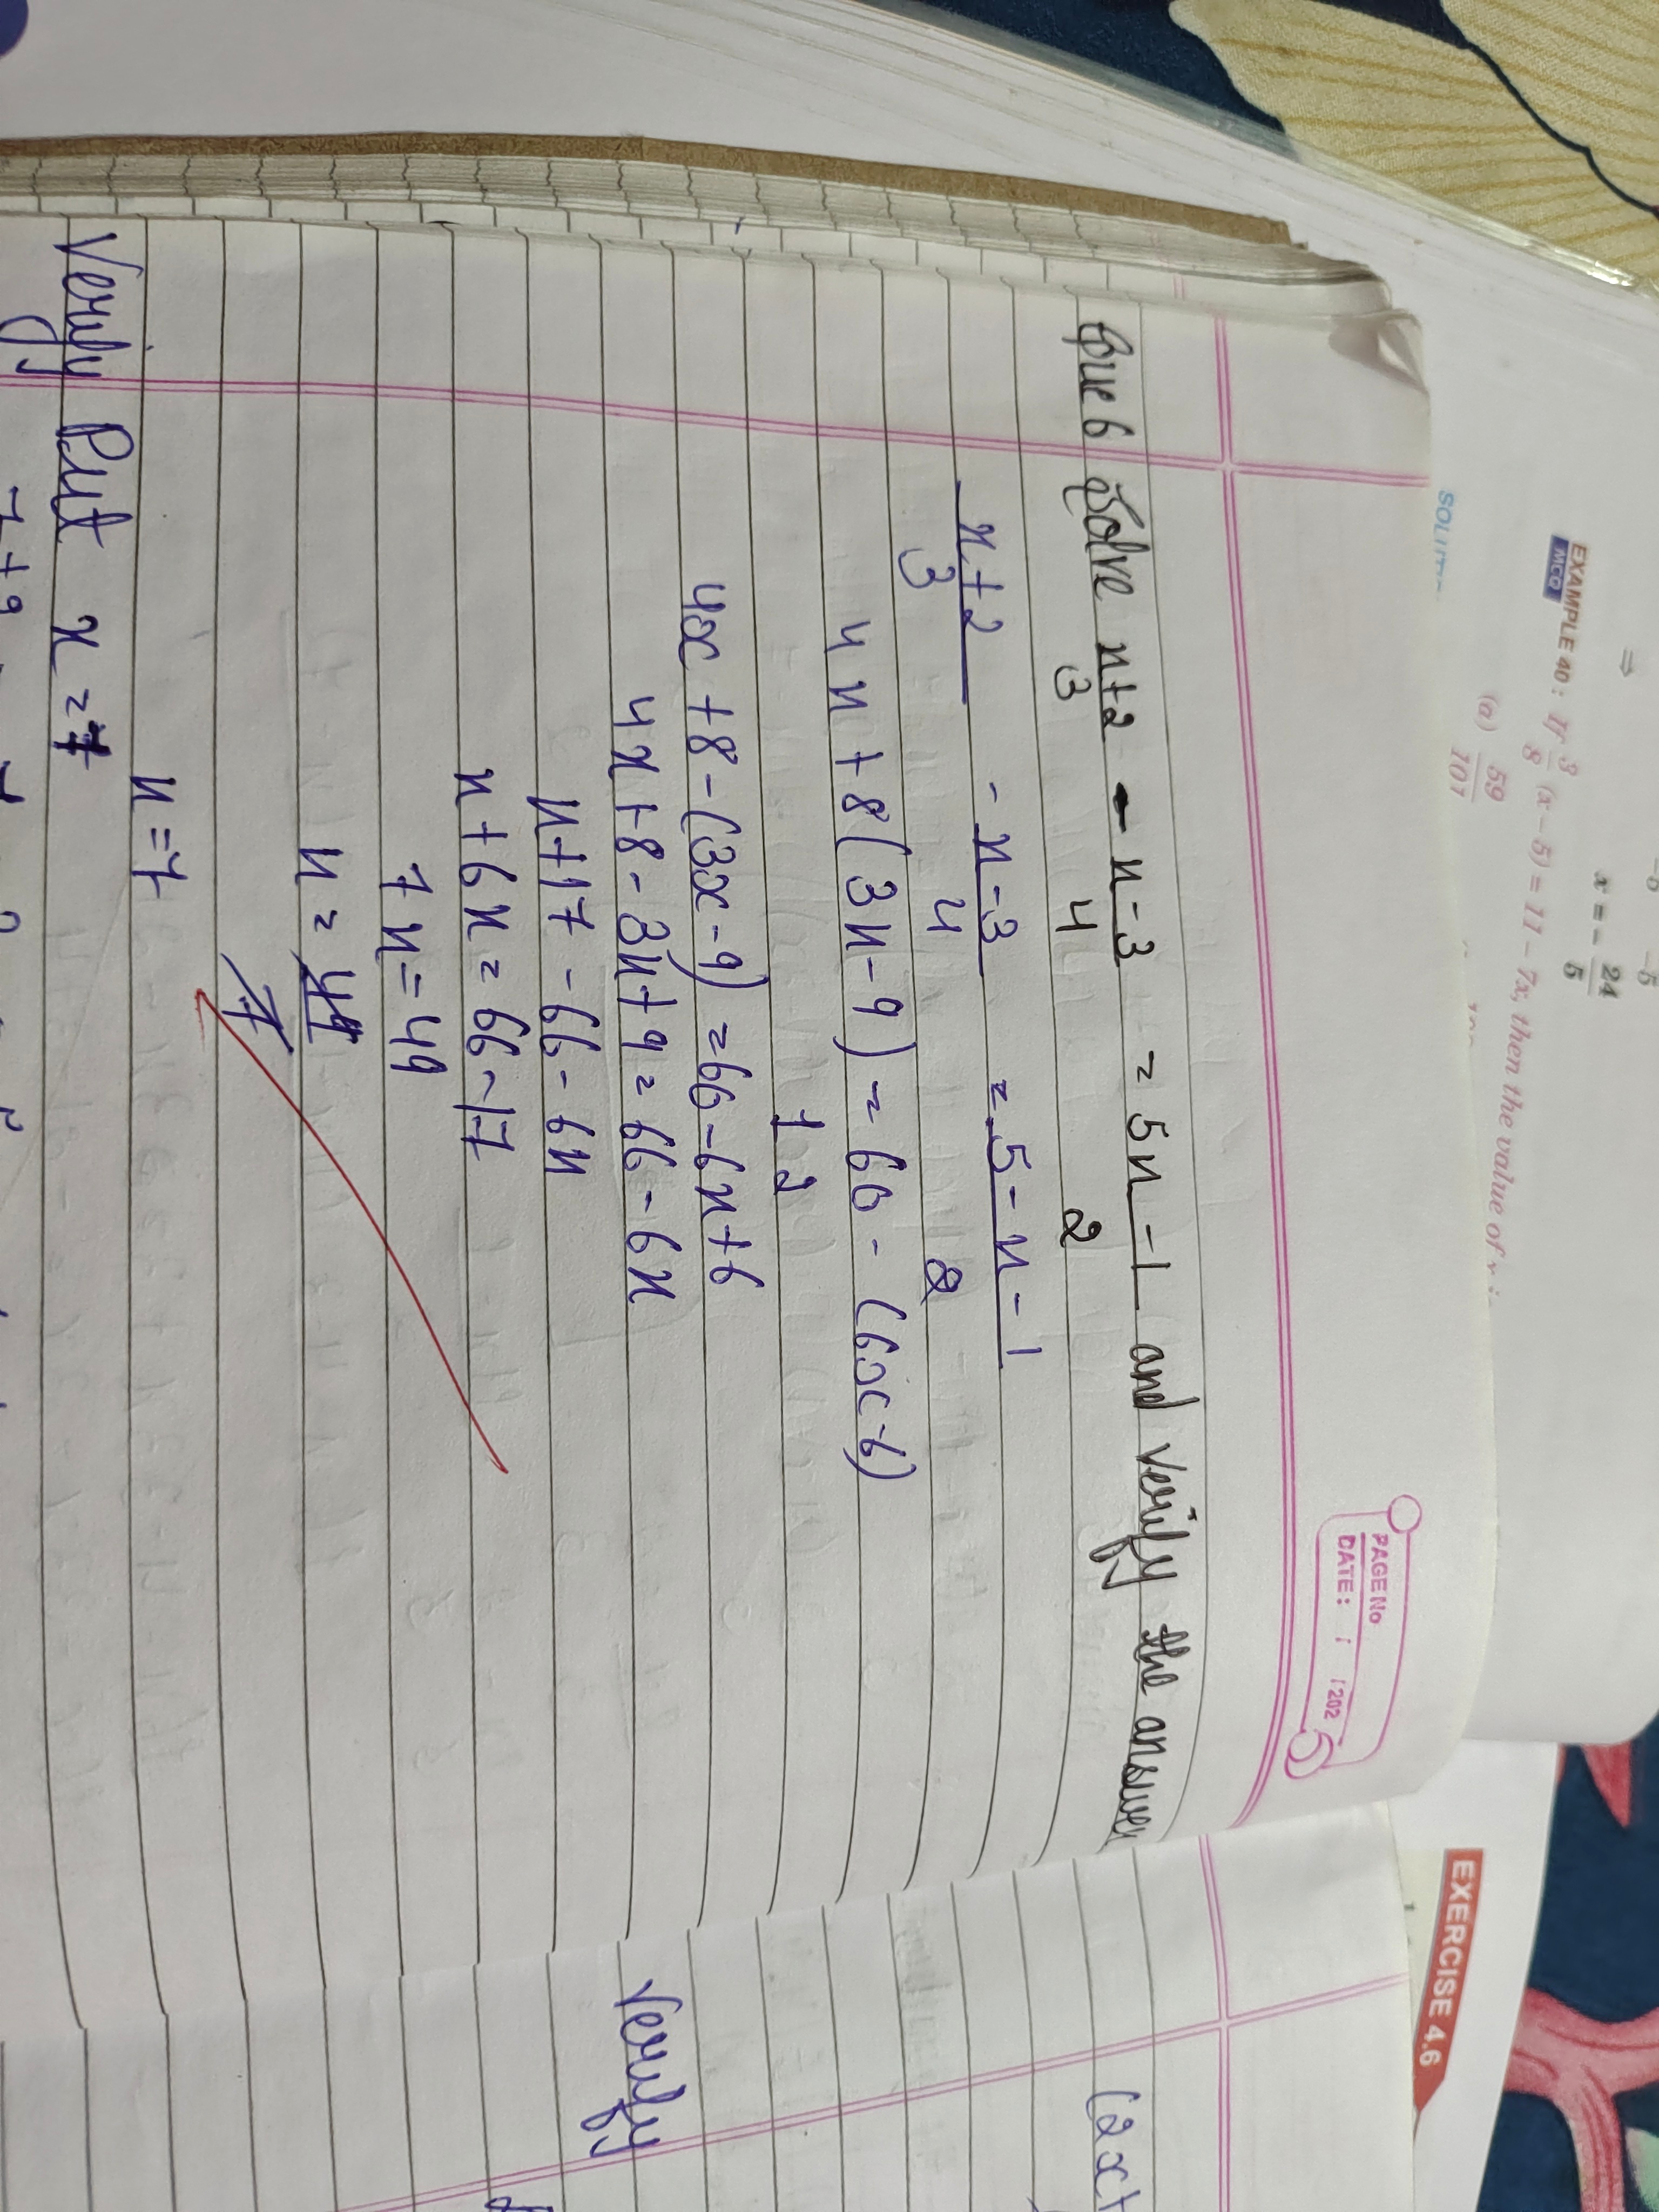 x = - 24/5
EXAMPLE 40 : If 3/8 (x - 5) = 11 - 7x, then the value of x :
MCQ
(a) 59/101
EXERCISE 4.6
PAGE No
DATE : / /202
Que 6 Solve x+2/3 - x-3/4 = 5x-1/2 and verify the answer
x+2/3 - x-3/4 = 5-x-1/2
4x+8(3x-9) = 60 - (6x-6)
12
4x+8-(3x-9) = 60-6x+6
4x+8-3x+9 = 66-6x
x+17 - 66 - 6x
x+6x = 66-17
7x = 49
x = 49/7
x = 7
Verify Put x = 7
(2x+
Verify